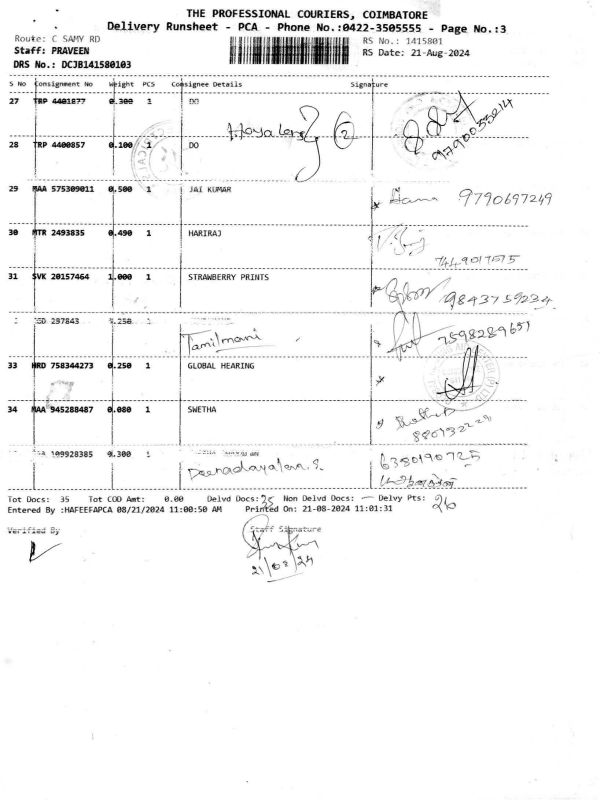 THE PROFESSIONAL COURIERS, COIMBATORE
Delivery Runsheet - PCA - Phone No.:0422-3505555 - Page No.:3
Route: C SAMY RD RS No.: 1415801
Staff: PRAVEEN RS Date: 21-Aug-2024
DRS No.: DCJB141580103
S No Consignment No Weight PCS Consignee Details Signature
27 TRP 4401877 0.300 1 DO
2 9790033214
28 TRP 4400857 0.100 1 DO
29 MAA 575309011 0.500 1 JAI KUMAR
9790697249
30 MTR 2493835 0.490 1 HARIRAJ
7449017575
31 SVK 20157464 1.000 1 STRAWBERRY PRINTS
9843759234
297843 0.250 1
Tamilmani 7598289657
33 HRD 758344273 0.250 1 GLOBAL HEARING
34 MAA 945288487 0.080 1 SWETHA
109928385 0.300 1
Deenadayalan.S 6380190725
Tot Docs: 35 Tot COD Amt: 0.00 Delvd Docs: 35 Non Delvd Docs: — Delvy Pts: 26
Entered By :HAFEEFAPCA 08/21/2024 11:00:50 AM Printed On: 21-08-2024 11:01:31
Verified By Staff Signature
21/08/24